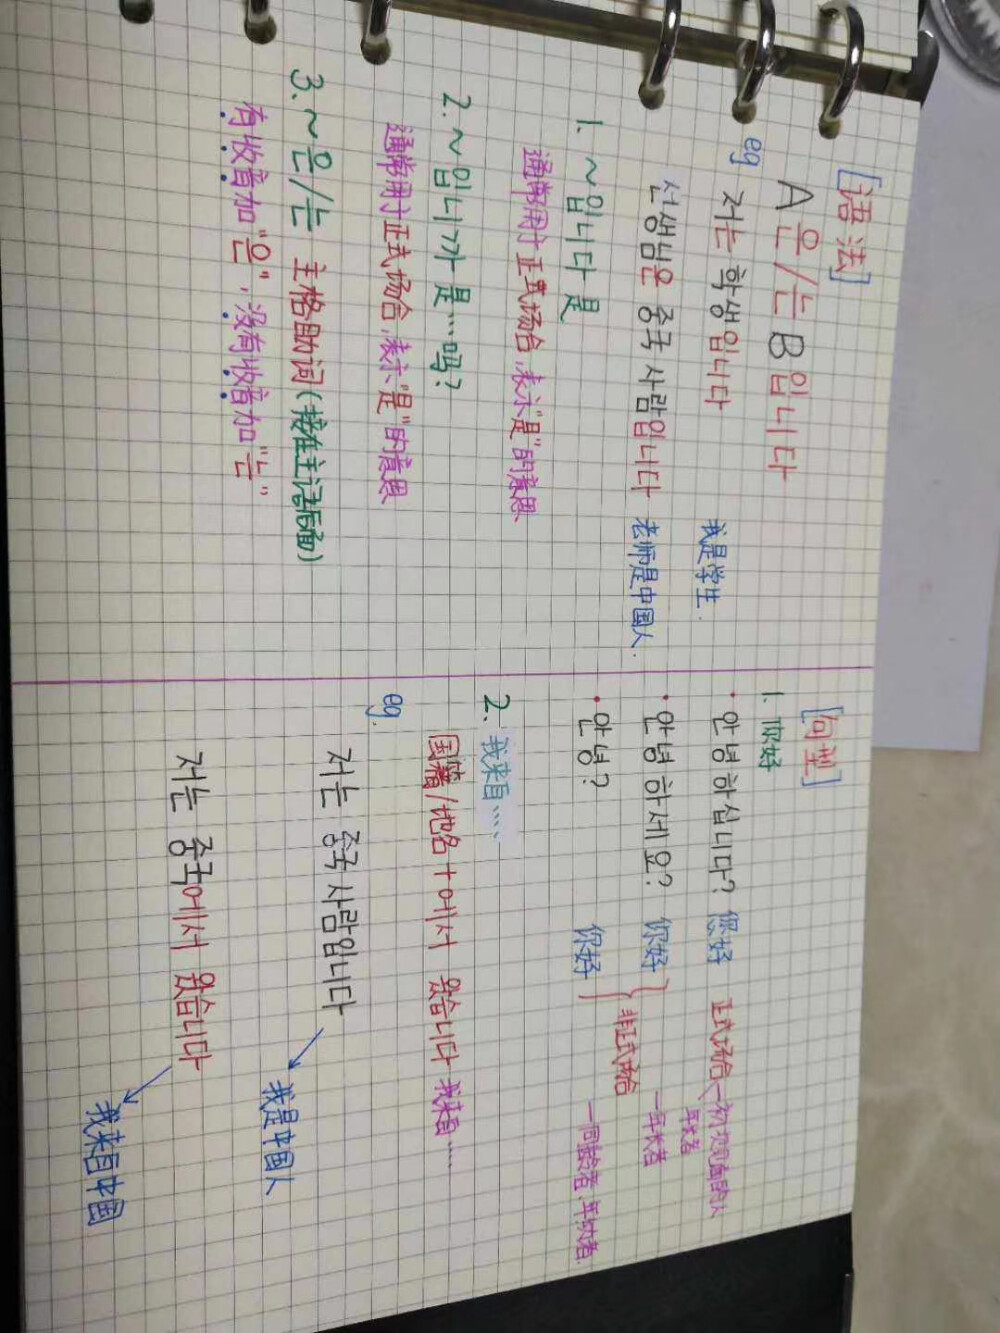 [语法]
A 은/는 B입니다
eg 저는 학생입니다 我是学生.
선생님은 중국 사람입니다 老师是中国人.
1. ~입니다 是
通常用于正式场合,表示"是"的意思
2. ~입니까 是…吗?
通常用于正式场合,表示"是"的意思
3. ~은/는 主格助词(接在主语后面)
有收音加"은", 没有收音加"는"
[句型]
1. 你好
· 안녕하십니다? 您好 正式场合 一初次见面的人
年长者
· 안녕하세요? 你好 一年长者
非正式场合
· 안녕? 你好 一同龄者.年幼者.
2. 我来自……
国籍/地名+에서 왔습니다 我来自……
eg.
저는 중국 사람입니다
我是中国人
저는 중국에서 왔습니다
我来自中国